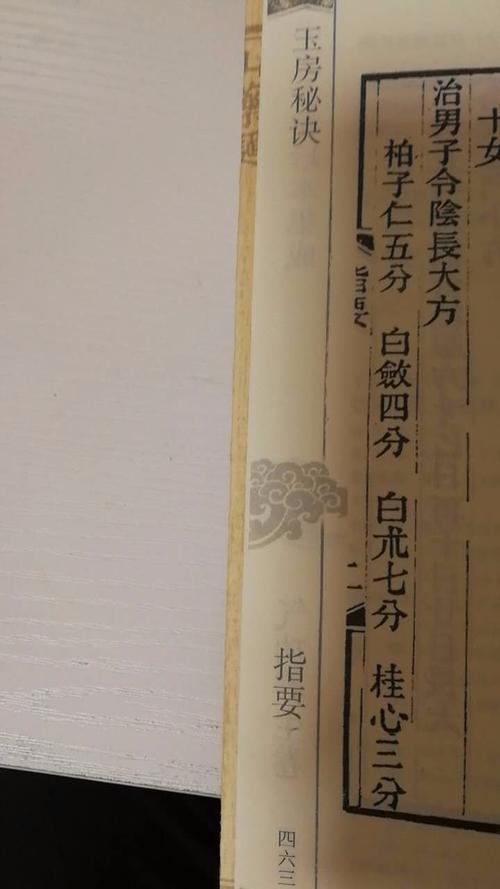 十女
治男子令陰長大方
柏子仁五分 白斂四分 白朮七分 桂心三分
指要
二
玉房秘诀
指要
四六三